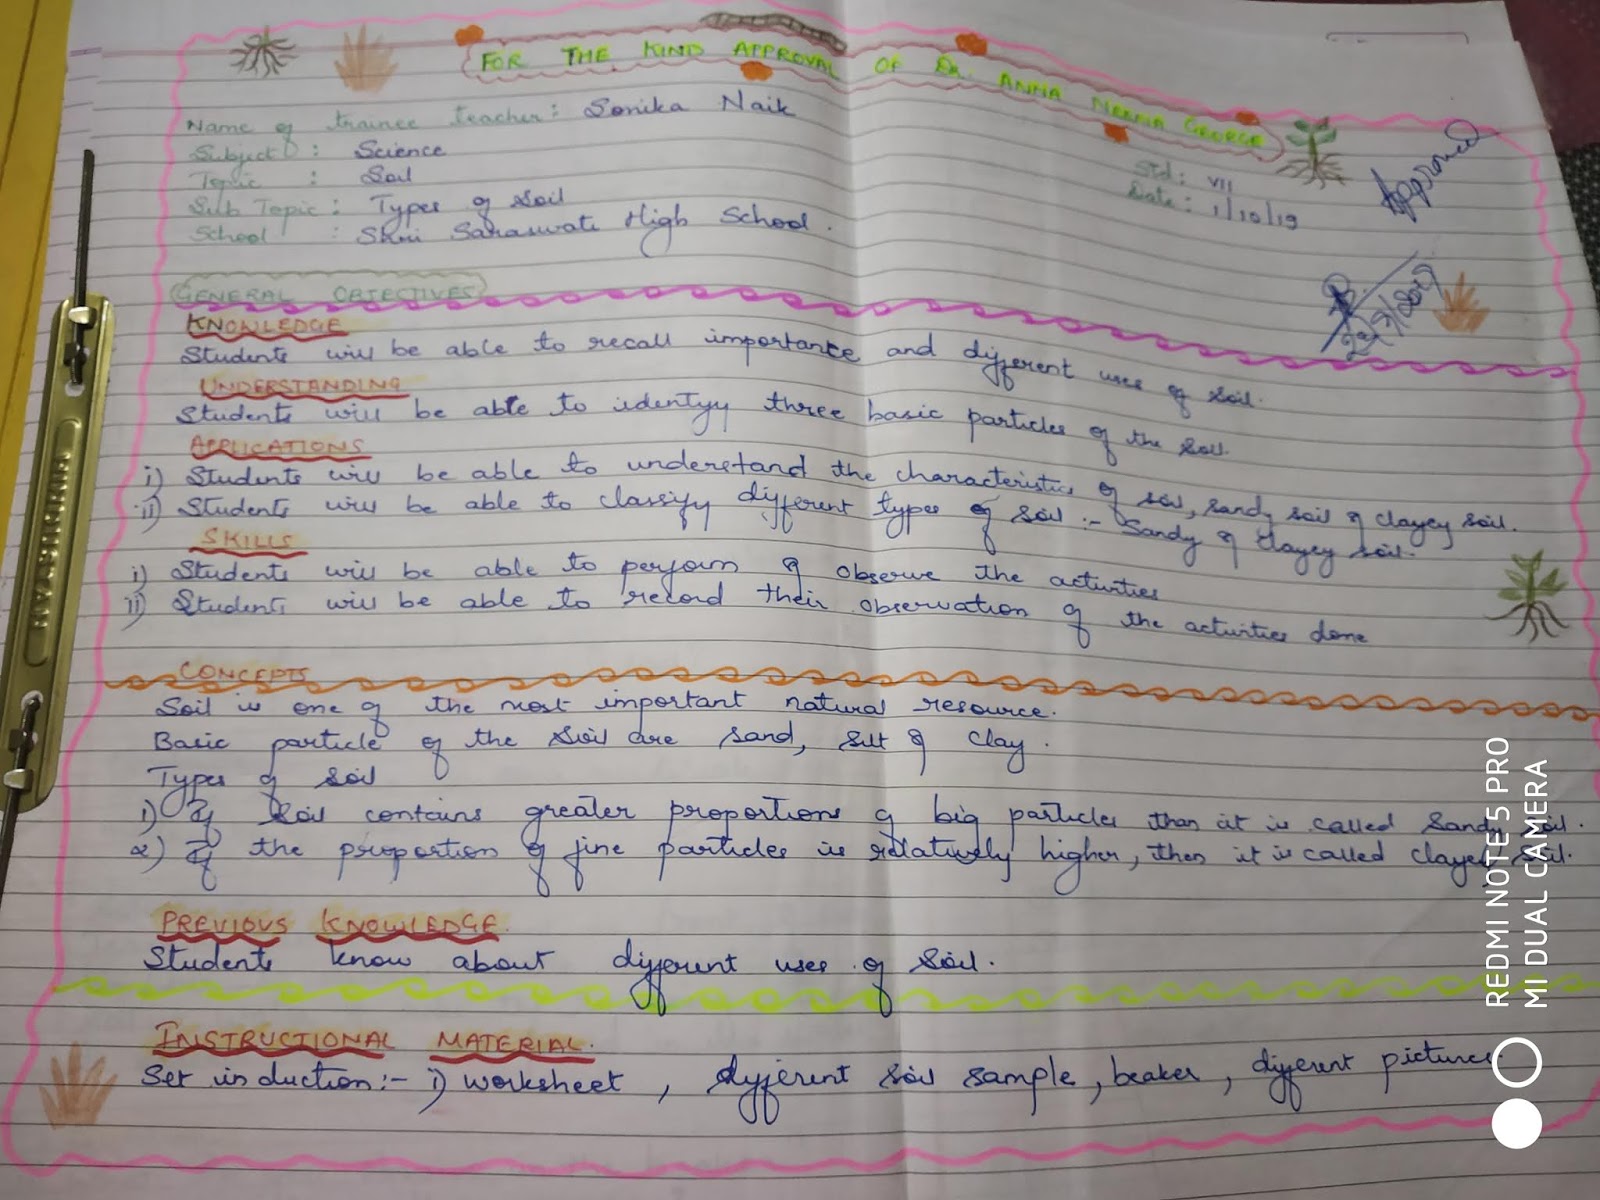 FOR THE KIND APPROVAL OF DR. ANNA NEENA GEORGE
Name of trainee teacher: Sonika Naik
Subject : Science
Topic : Soil
Sub Topic : Types of Soil
School : Shri Saraswati High School.
Std : VII
Date : 1/10/19
Approved
GENERAL OBJECTIVES
KNOWLEDGE
Students will be able to recall importance and different uses of soil.
UNDERSTANDING
Students will be able to identify three basic particles of the soil.
APPLICATIONS
i) Students will be able to understand the characteristics of soil, sandy soil & clayey soil.
ii) Students will be able to classify different types of soil :- Sandy & clayey soil.
SKILLS
i) Students will be able to perform & observe the activities
ii) Students will be able to record their observation of the activities done
CONCEPTS
Soil is one of the most important natural resource.
Basic particle of the soil are sand, silt & clay.
Types of soil
1) If soil contains greater proportions of big particles than it is called Sandy soil.
2) If the proportion of fine particles is relatively higher, then it is called clayey soil.
PREVIOUS KNOWLEDGE.
Students know about different uses of soil.
INSTRUCTIONAL MATERIAL.
Set induction:- i) worksheet, different soil sample, beaker, different pictures
HAYASHIRIN
REDMI NOTE 5 PRO
MI DUAL CAMERA